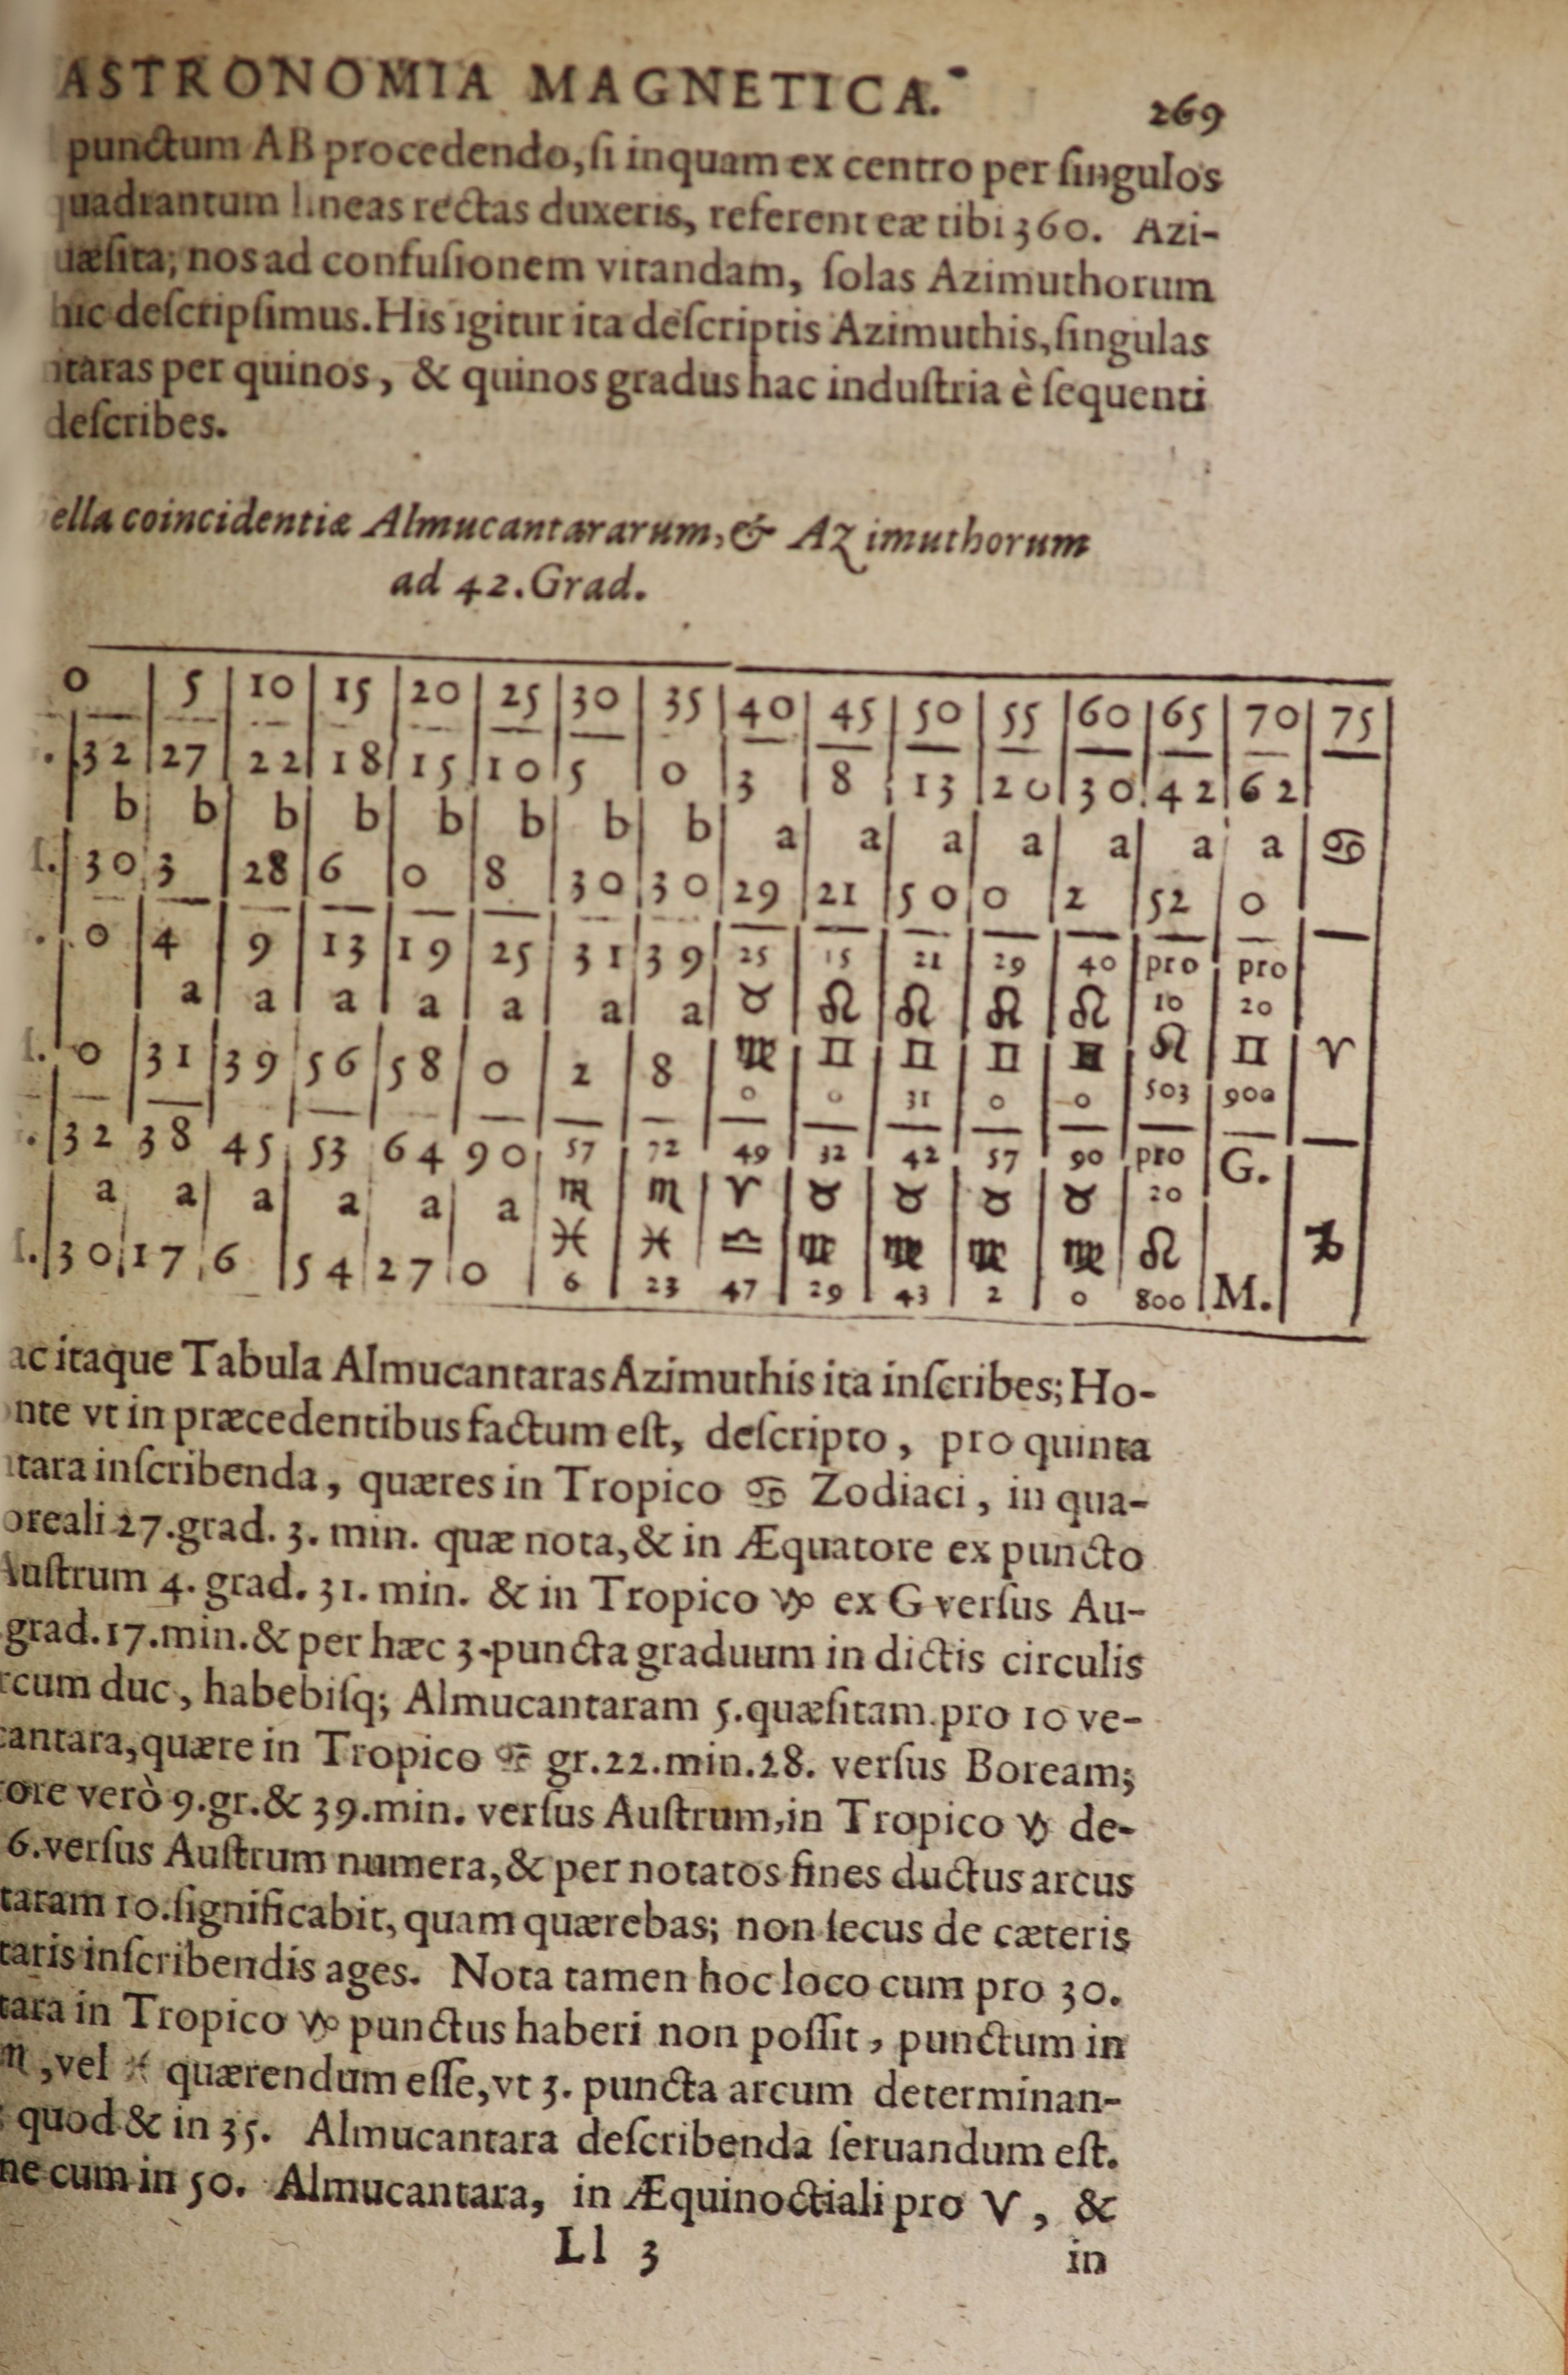 ASTRONOMIA MAGNETICA. 269
punctum AB procedendo, ſi inquam ex centro per ſingulos
uadrantum lineas rectas duxeris, referent eæ tibi 360. Azi-
uæſita; nos ad confuſionem vitandam, ſolas Azimuthorum
hic deſcripſimus. His igitur ita deſcriptis Azimuthis, ſingulas
ntaras per quinos, & quinos gradus hac induſtria è ſequenti
deſcribes.
ella coincidentiæ Almucantararum, & Azimuthorum
ad 42. Grad.
0 5 10 15 20 25 30 35 40 45 50 55 60 65 70 75
. 32 27 22 18 15 10 5 0 3 8 13 20 30 42 62
b b b b b b b b a a a a a a a ♋
I. 30 3 28 6 0 8 30 30 29 21 50 0 2 52 0
. 0 4 9 13 19 25 31 39 25 15 21 29 40 pro pro
a a a a a a a ♉ ♌ ♌ ♌ ♌ 10 20
I. 0 31 39 56 58 0 2 8 ♍ ♊ ♊ ♊ ♊ ♌ ♊ ♈
0 0 31 0 0 503 900
. 32 38 45 53 64 90 57 72 49 32 42 57 90 pro G.
a a a a a a ♏ ♏ ♈ ♉ ♉ ♉ ♉ 20
♓ ♓ ♎ ♍ ♍ ♍ ♍ ♌ ♑
I. 30 17 6 54 27 0 6 23 47 29 43 2 0 800 M.
ac itaque Tabula Almucantaras Azimuthis ita inſcribes; Ho-
nte vt in præcedentibus factum eſt, deſcripto, pro quinta
ntara inſcribenda, quæres in Tropico ♋ Zodiaci, in qua-
oreali 27. grad. 3. min. quæ nota, & in Æquatore ex puncto
Auſtrum 4. grad. 31. min. & in Tropico ♑ ex G verſus Au-
grad. 17. min. & per hæc 3. puncta graduum in dictis circulis
rcum duc, habebiſq; Almucantaram 5. quæſitam. pro 10 ve-
cantara, quære in Tropico ♋ gr. 22. min. 28. verſus Boream;
tore verò 9. gr. & 39. min. verſus Auſtrum, in Tropico ♑ de-
6. verſus Auſtrum numera, & per notatos fines ductus arcus
taram 10. ſignificabit, quam quærebas; non ſecus de cæteris
taris inſcribendis ages. Nota tamen hoc loco cum pro 30.
tara in Tropico ♑ punctus haberi non poſſit, punctum in
♏, vel ♓ quærendum eſſe, vt 3. puncta arcum determinan-
; quod & in 35. Almucantara deſcribenda ſeruandum eſt.
ne cum in 50. Almucantara, in Æquinoctiali pro ♈, &
Ll 3 in